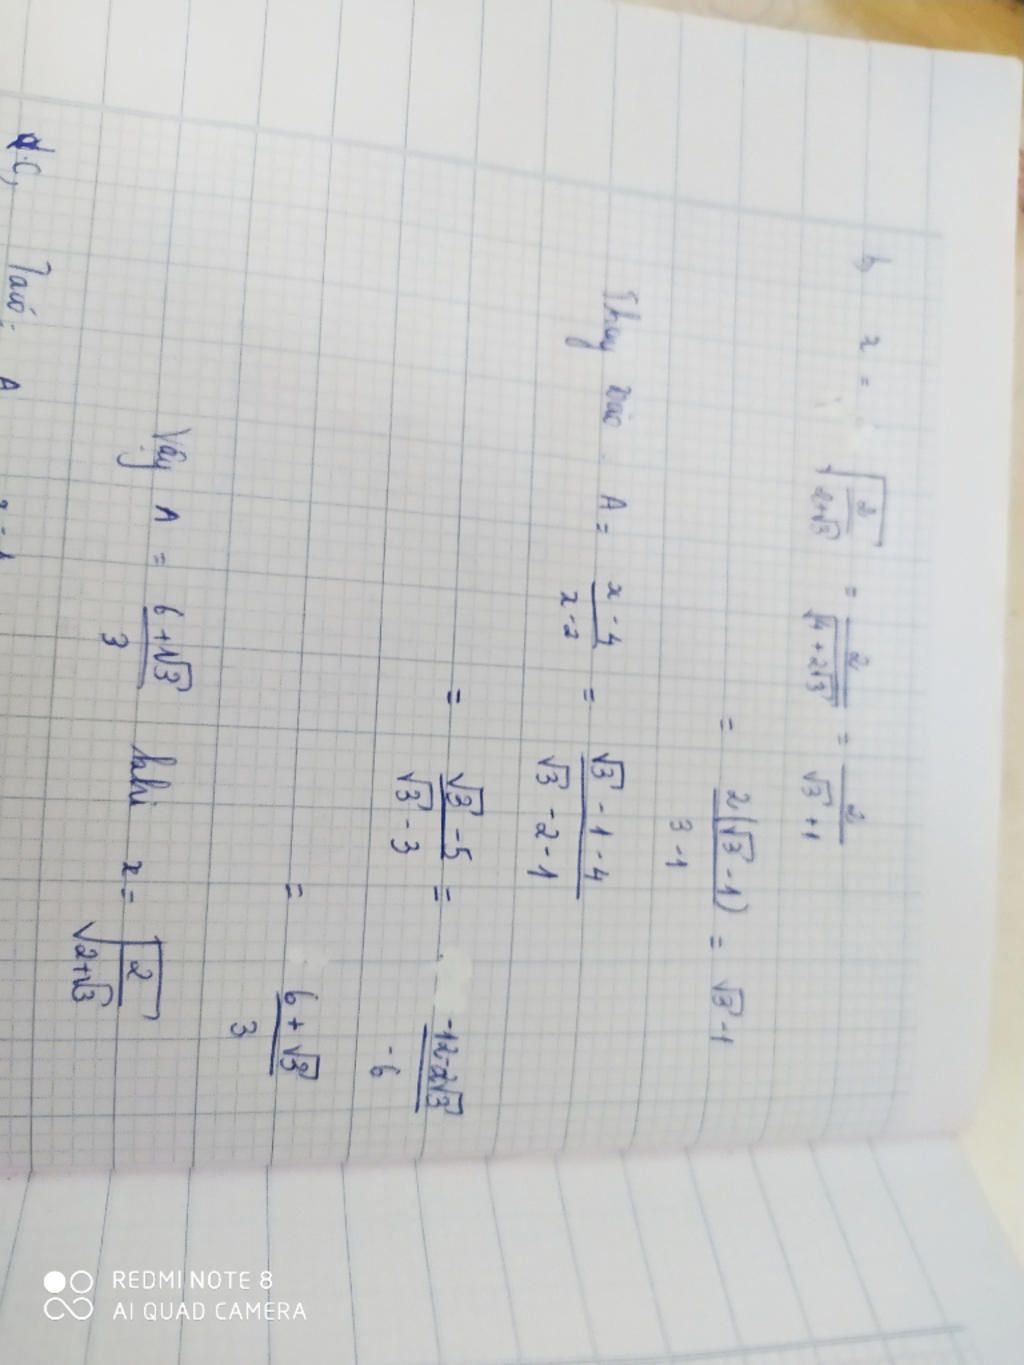 b, x = √(2/(2+√3)) = 2/√(4+2√3) = 2/(√3+1)
= 2(√3-1)/(3-1) = √3-1
Thay vào A = (x-4)/(x-2) = (√3-1-4)/(√3-2-1)
= (√3-5)/(√3-3) = (-12-2√3)/-6
= (6+√3)/3
Vậy A = (6+√3)/3 khi x = √(2/(2+√3))
c, Ta có: A
REDMI NOTE 8
AI QUAD CAMERA